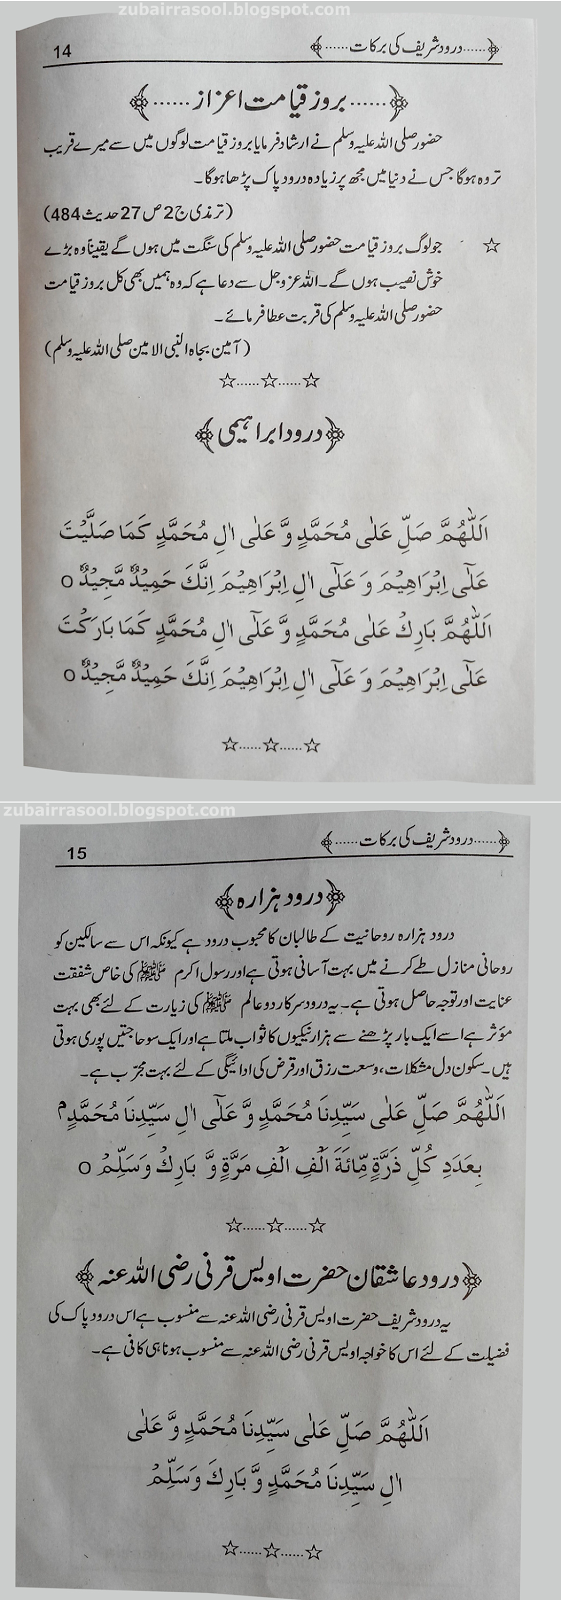 zubairrasool.blogspot.com
......درود شریف کی برکات...... 14
......بروز قیامت اعزاز......
حضور صلی اللہ علیہ وسلم نے ارشاد فرمایا بروز قیامت لوگوں میں سے میرے قریب
تر وہ ہوگا جس نے دنیا میں مجھ پر زیادہ درود پاک پڑھا ہوگا۔
(ترمذی ج 2 ص 27 حدیث 484)
☆ جو لوگ بروز قیامت حضور صلی اللہ علیہ وسلم کی سنگت میں ہوں گے یقیناً وہ بڑے
خوش نصیب ہوں گے۔ اللہ عزوجل سے دعا ہے کہ وہ ہمیں بھی کل بروز قیامت
حضور صلی اللہ علیہ وسلم کی قربت عطا فرمائے۔
(آمین بجاہ النبی الامین صلی اللہ علیہ وسلم)
☆......☆......☆
درود ابراہیمی
اَللّٰهُمَّ صَلِّ عَلٰى مُحَمَّدٍ وَّ عَلٰى اٰلِ مُحَمَّدٍ كَمَا صَلَّيْتَ
عَلٰٓى اِبْرَاهِيْمَ وَ عَلٰٓى اٰلِ اِبْرَاهِيْمَ اِنَّكَ حَمِيْدٌ مَّجِيْدٌ ○
اَللّٰهُمَّ بَارِكْ عَلٰى مُحَمَّدٍ وَّ عَلٰٓى اٰلِ مُحَمَّدٍ كَمَا بَارَكْتَ
عَلٰٓى اِبْرَاهِيْمَ وَ عَلٰٓى اٰلِ اِبْرَاهِيْمَ اِنَّكَ حَمِيْدٌ مَّجِيْدٌ ○
☆......☆......☆
zubairrasool.blogspot.com
......درود شریف کی برکات...... 15
درود ہزارہ
درود ہزارہ روحانیت کے طالبان کا محبوب درود ہے کیونکہ اس سے سالکین کو
روحانی منازل طے کرنے میں بہت آسانی ہوتی ہے اور رسول اکرم ﷺ کی خاص شفقت
عنایت اور توجہ حاصل ہوتی ہے۔ یہ درود سرکار دو عالم ﷺ کی زیارت کے لئے بھی بہت
مؤثر ہے اسے ایک بار پڑھنے سے ہزار نیکیوں کا ثواب ملتا ہے اور ایک سو حاجتیں پوری ہوتی
ہیں۔ سکون دل مشکلات، وسعت رزق اور قرض کی ادائیگی کے لئے بہت مجرّب ہے۔
اَللّٰهُمَّ صَلِّ عَلٰى سَيِّدِنَا مُحَمَّدٍ وَّ عَلٰٓى اٰلِ سَيِّدِنَا مُحَمَّدٍ م
بِعَدَدِ كُلِّ ذَرَّةٍ مِّائَةَ اَلْفِ اَلْفِ مَرَّةٍ وَّ بَارِكْ وَسَلِّمْ ○
☆......☆......☆
درود عاشقان حضرت اویس قرنی رضی اللہ عنہ
یہ درود شریف حضرت اویس قرنی رضی اللہ عنہ سے منسوب ہے اس درود پاک کی
فضیلت کے لئے اس کا خواجہ اویس قرنی رضی اللہ عنہ سے منسوب ہونا ہی کافی ہے۔
اَللّٰهُمَّ صَلِّ عَلٰى سَيِّدِنَا مُحَمَّدٍ وَّ عَلٰى
اٰلِ سَيِّدِنَا مُحَمَّدٍ وَّ بَارِكَ وَسَلِّمْ
☆......☆......☆